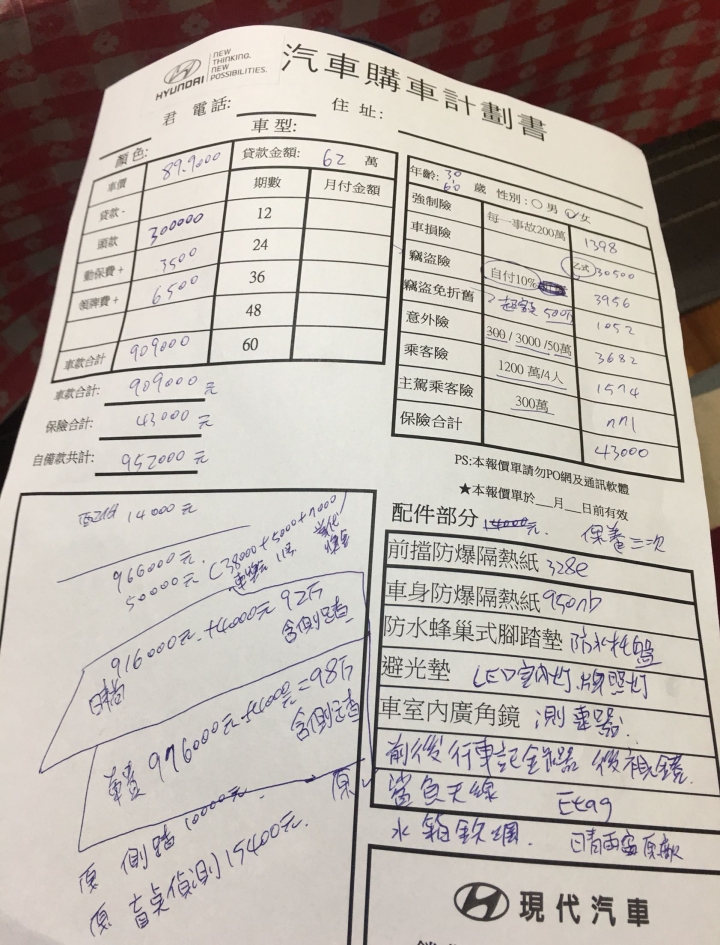 HYUNDAI
NEW THINKING. NEW POSSIBILITIES.
汽車購車計劃書
君 電話: 住 址:
顏色: 車型:
車價 899000 貸款金額: 62 萬
貸款 - 期數 月付金額
頭款 300000 12
動保費+ 3500 24
領牌費+ 6500 36
48
車款合計 909000 60
車款合計: 909000 元
保險合計: 43000 元
自備款共計: 952000 元
年齡: 30 60 歲 性別: 男 女
強制險 每一事故200萬 1398
車損險 乙式 30500
竊盜險 自付10% 3956
竊盜免折舊 超額 500萬 1052
意外險 300/3000/50萬 3682
乘客險 1200 萬/4人 1574
主駕乘客險 300萬
保險合計 43000
PS:本報價單請勿PO網及通訊軟體
★本報價單於__月__日前有效
配件部分 14000元. 保養三次
前擋防爆隔熱紙 328e
車身防爆隔熱紙
防水蜂巢式腳踏墊 防水托盤
避光墊 LED室內灯 牌照灯
車室內廣角鏡 測速器.
前後行車記錄器 後視鏡.
鯊魚天線 Etag
水箱鉄網. 晴雨窗原廠
配件 14000元
966000元
50000元. (38000+5000+7000
916000元+4000元 92万
含側踏
976000元+4000元=98万
含側踏
原 側踏 10000元.
原 盲点偵測 15400元.
現代汽車